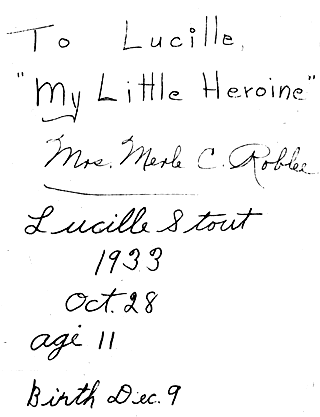 To Lucille,
"My Little Heroine"
Mrs. Merle C. Roblee
Lucille Stout
1933
Oct. 28
age 11
Birth Dec. 9